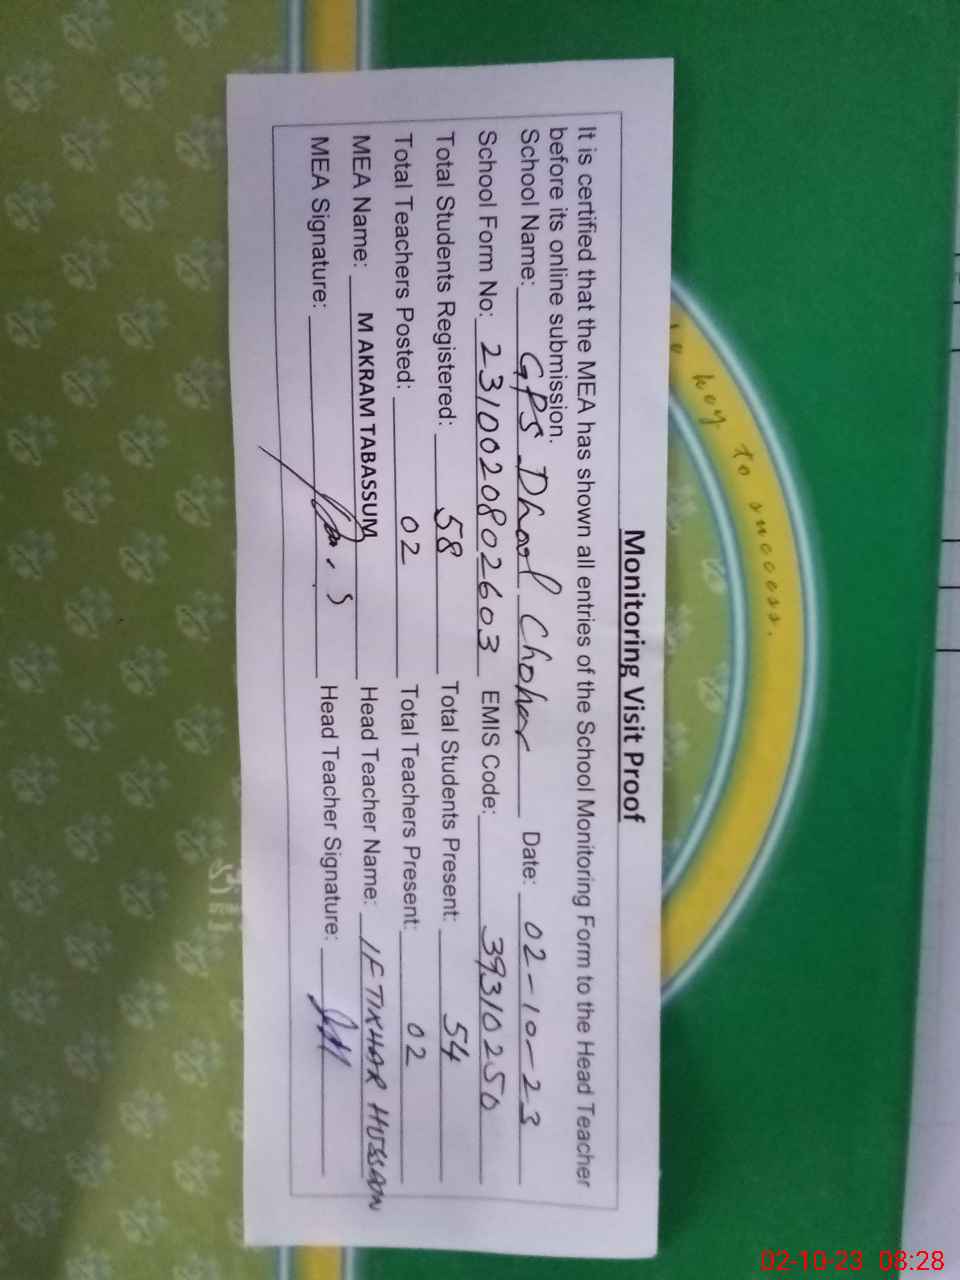 Monitoring Visit Proof
It is certified that the MEA has shown all entries of the School Monitoring Form to the Head Teacher
before its online submission.
School Name: GPS Dhool Choher Date: 02-10-23
School Form No: 2310020802603 EMIS Code: 39310250
Total Students Registered: 58 Total Students Present: 54
Total Teachers Posted: 02 Total Teachers Present: 02
MEA Name: M AKRAM TABASSUM Head Teacher Name: IFTIKHAR HUSSAIN
MEA Signature: Head Teacher Signature:
key to success.
02-10-23 08:28